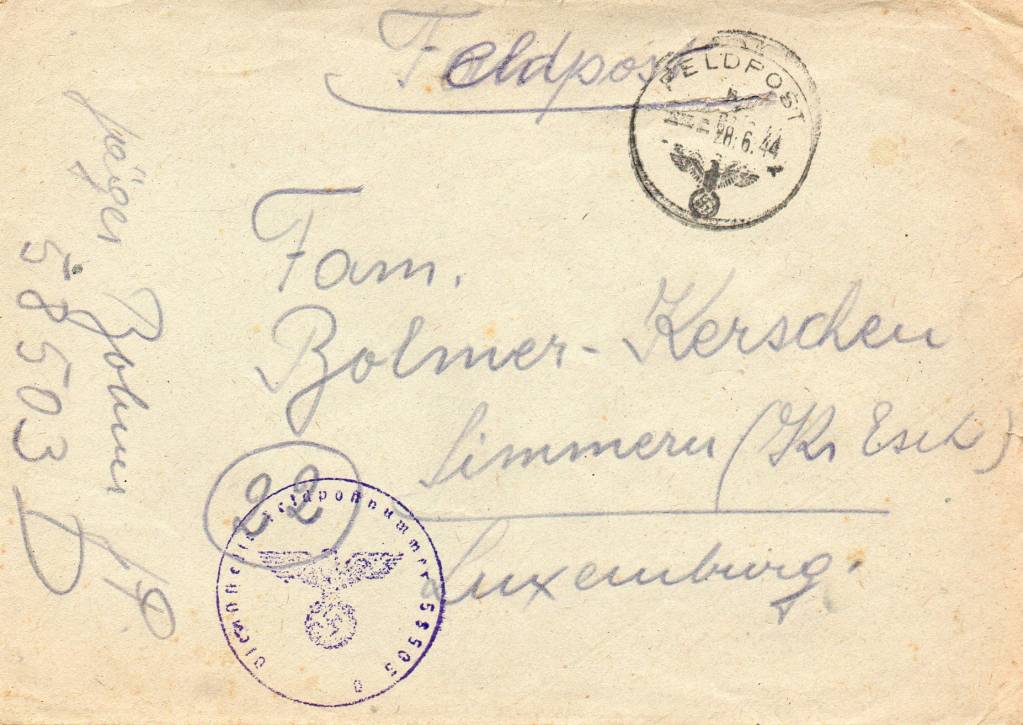 Feldpost
FELDPOST
28.6.44
Fam.
Bolmer-Kerschen
Simmern (Kr Esch)
Luxemburg.
22
Dienststelle Feldpostnummer 58503 D
Jäger
58503 D